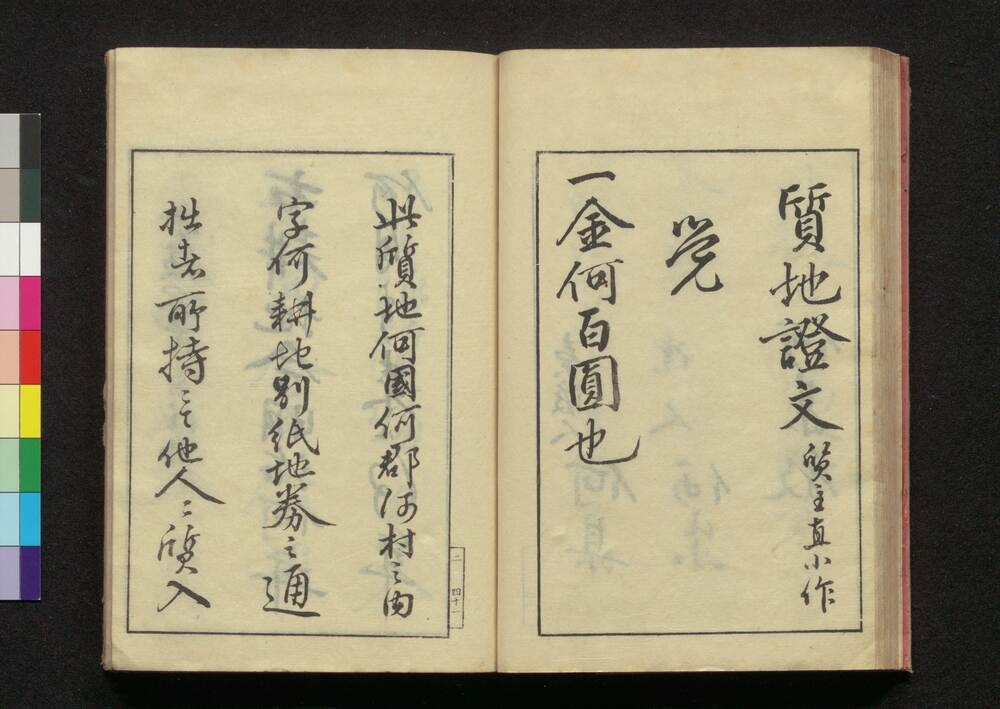 質地證文 質主直小作
覚
一金何百圓也
此質地何國何郡何村之内
字何耕地別紙地券之通
拙者所持ニて他人ニ質入
一 四十一